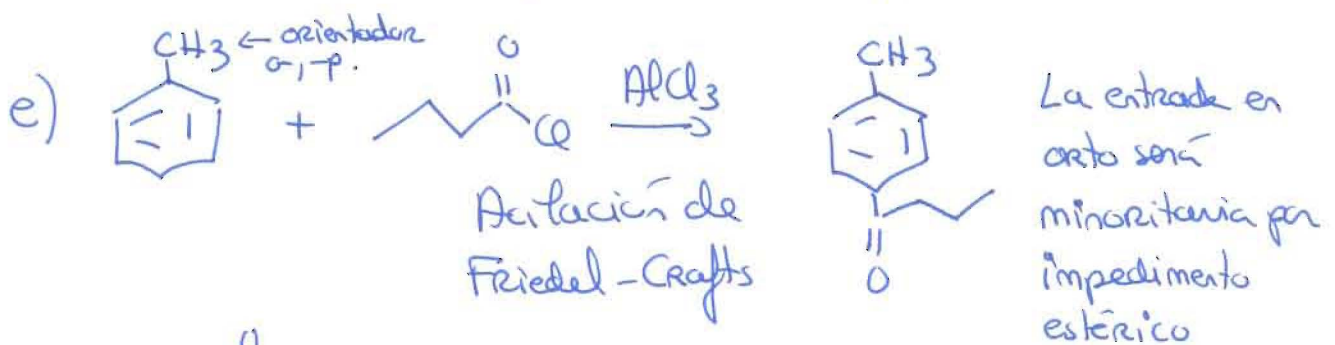 CH3 ← orientador
o-, -p.
e)
+
O
Cl
AlCl3
Acilación de
Friedel-Crafts
CH3
O
La entrada en
orto será
minoritaria por
impedimento
estérico